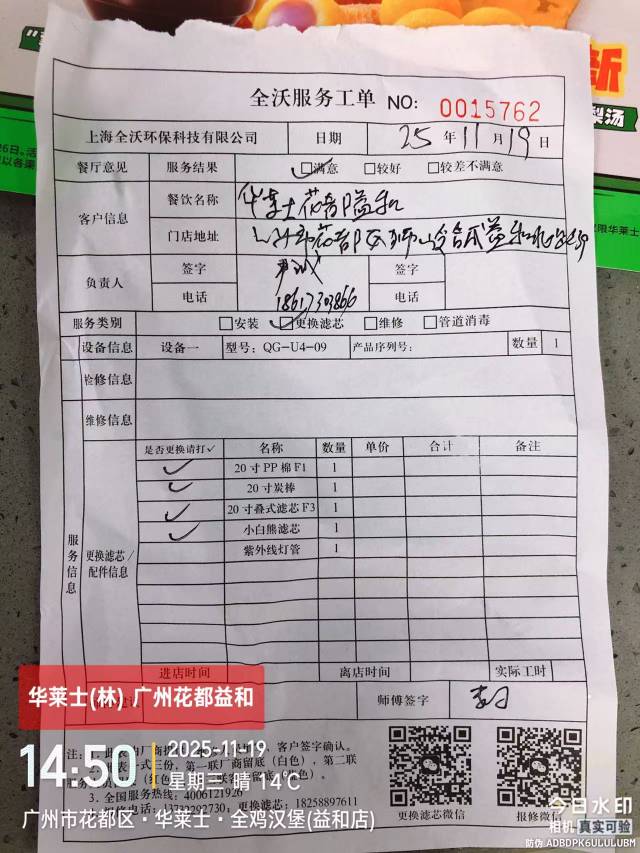 新
全沃服务工单 NO: 0015762
上海全沃环保科技有限公司 日期 25 年 11 月 19 日
餐厅意见 服务结果 ☑满意 □较好 □较差不满意
客户信息 餐饮名称 华莱士花都益和
门店地址
负责人 签字 签字
电话 18617303866 电话
服务类别 □安装 ☑更换滤芯 □维修 □管道消毒
设备信息 设备一 型号: QG-U4-09 产品序列号: 数量 1
检修信息
维修信息
服务信息
更换滤芯/配件信息
是否更换请打✓ 名称 数量 单价 合计 备注
✓ 20寸PP棉F1 1
✓ 20寸炭棒 1
✓ 20寸叠式滤芯F3 1
✓ 小白熊滤芯 1
紫外线灯管 1
进店时间 离店时间 实际工时
师傅签字
华莱士(林) 广州花都益和
14:50 2025-11-19
星期三 晴 14℃
广州市花都区·华莱士·全鸡汉堡(益和店)
客户签字确认。
第一联厂商留底(白色),第二联
3. 全国服务热线: 4006121926
18258897611
更换滤芯微信 报修微信
今日水印
相机 真实可验
防伪 ADBDPK6ULULUBM